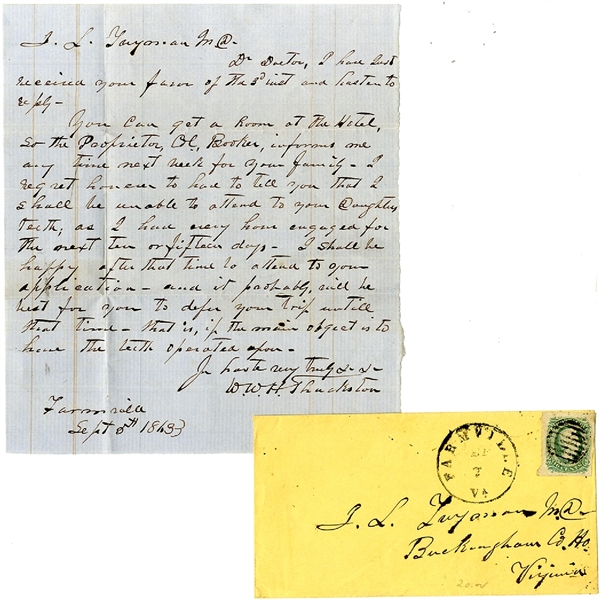 J. L. Twyman M.D.
Dr Doctor, I have just
received your favor of the 3d inst and hasten to
reply -
You can get a Room at the Hotel,
so the Proprietor, Col, Booker, informs me
any time next week for your family - I
regret however to have to tell you that I
shall be unable to attend to your Daughters
teeth; as I have every hour engaged for
the next ten or fifteen days - I shall be
happy after that time to attend to your
application - and it probably, will be
best for you to defer your trip untill
that time - that is, if the main object is to
have the teeth operated upon -
In haste very truly &c &c
W. W. H. Thackston
Farmville
Sept 5th 1863
FARMVILLE
SEP
7
VA
J. L. Twyman M.D.
Buckingham C. Ho.
Virginia